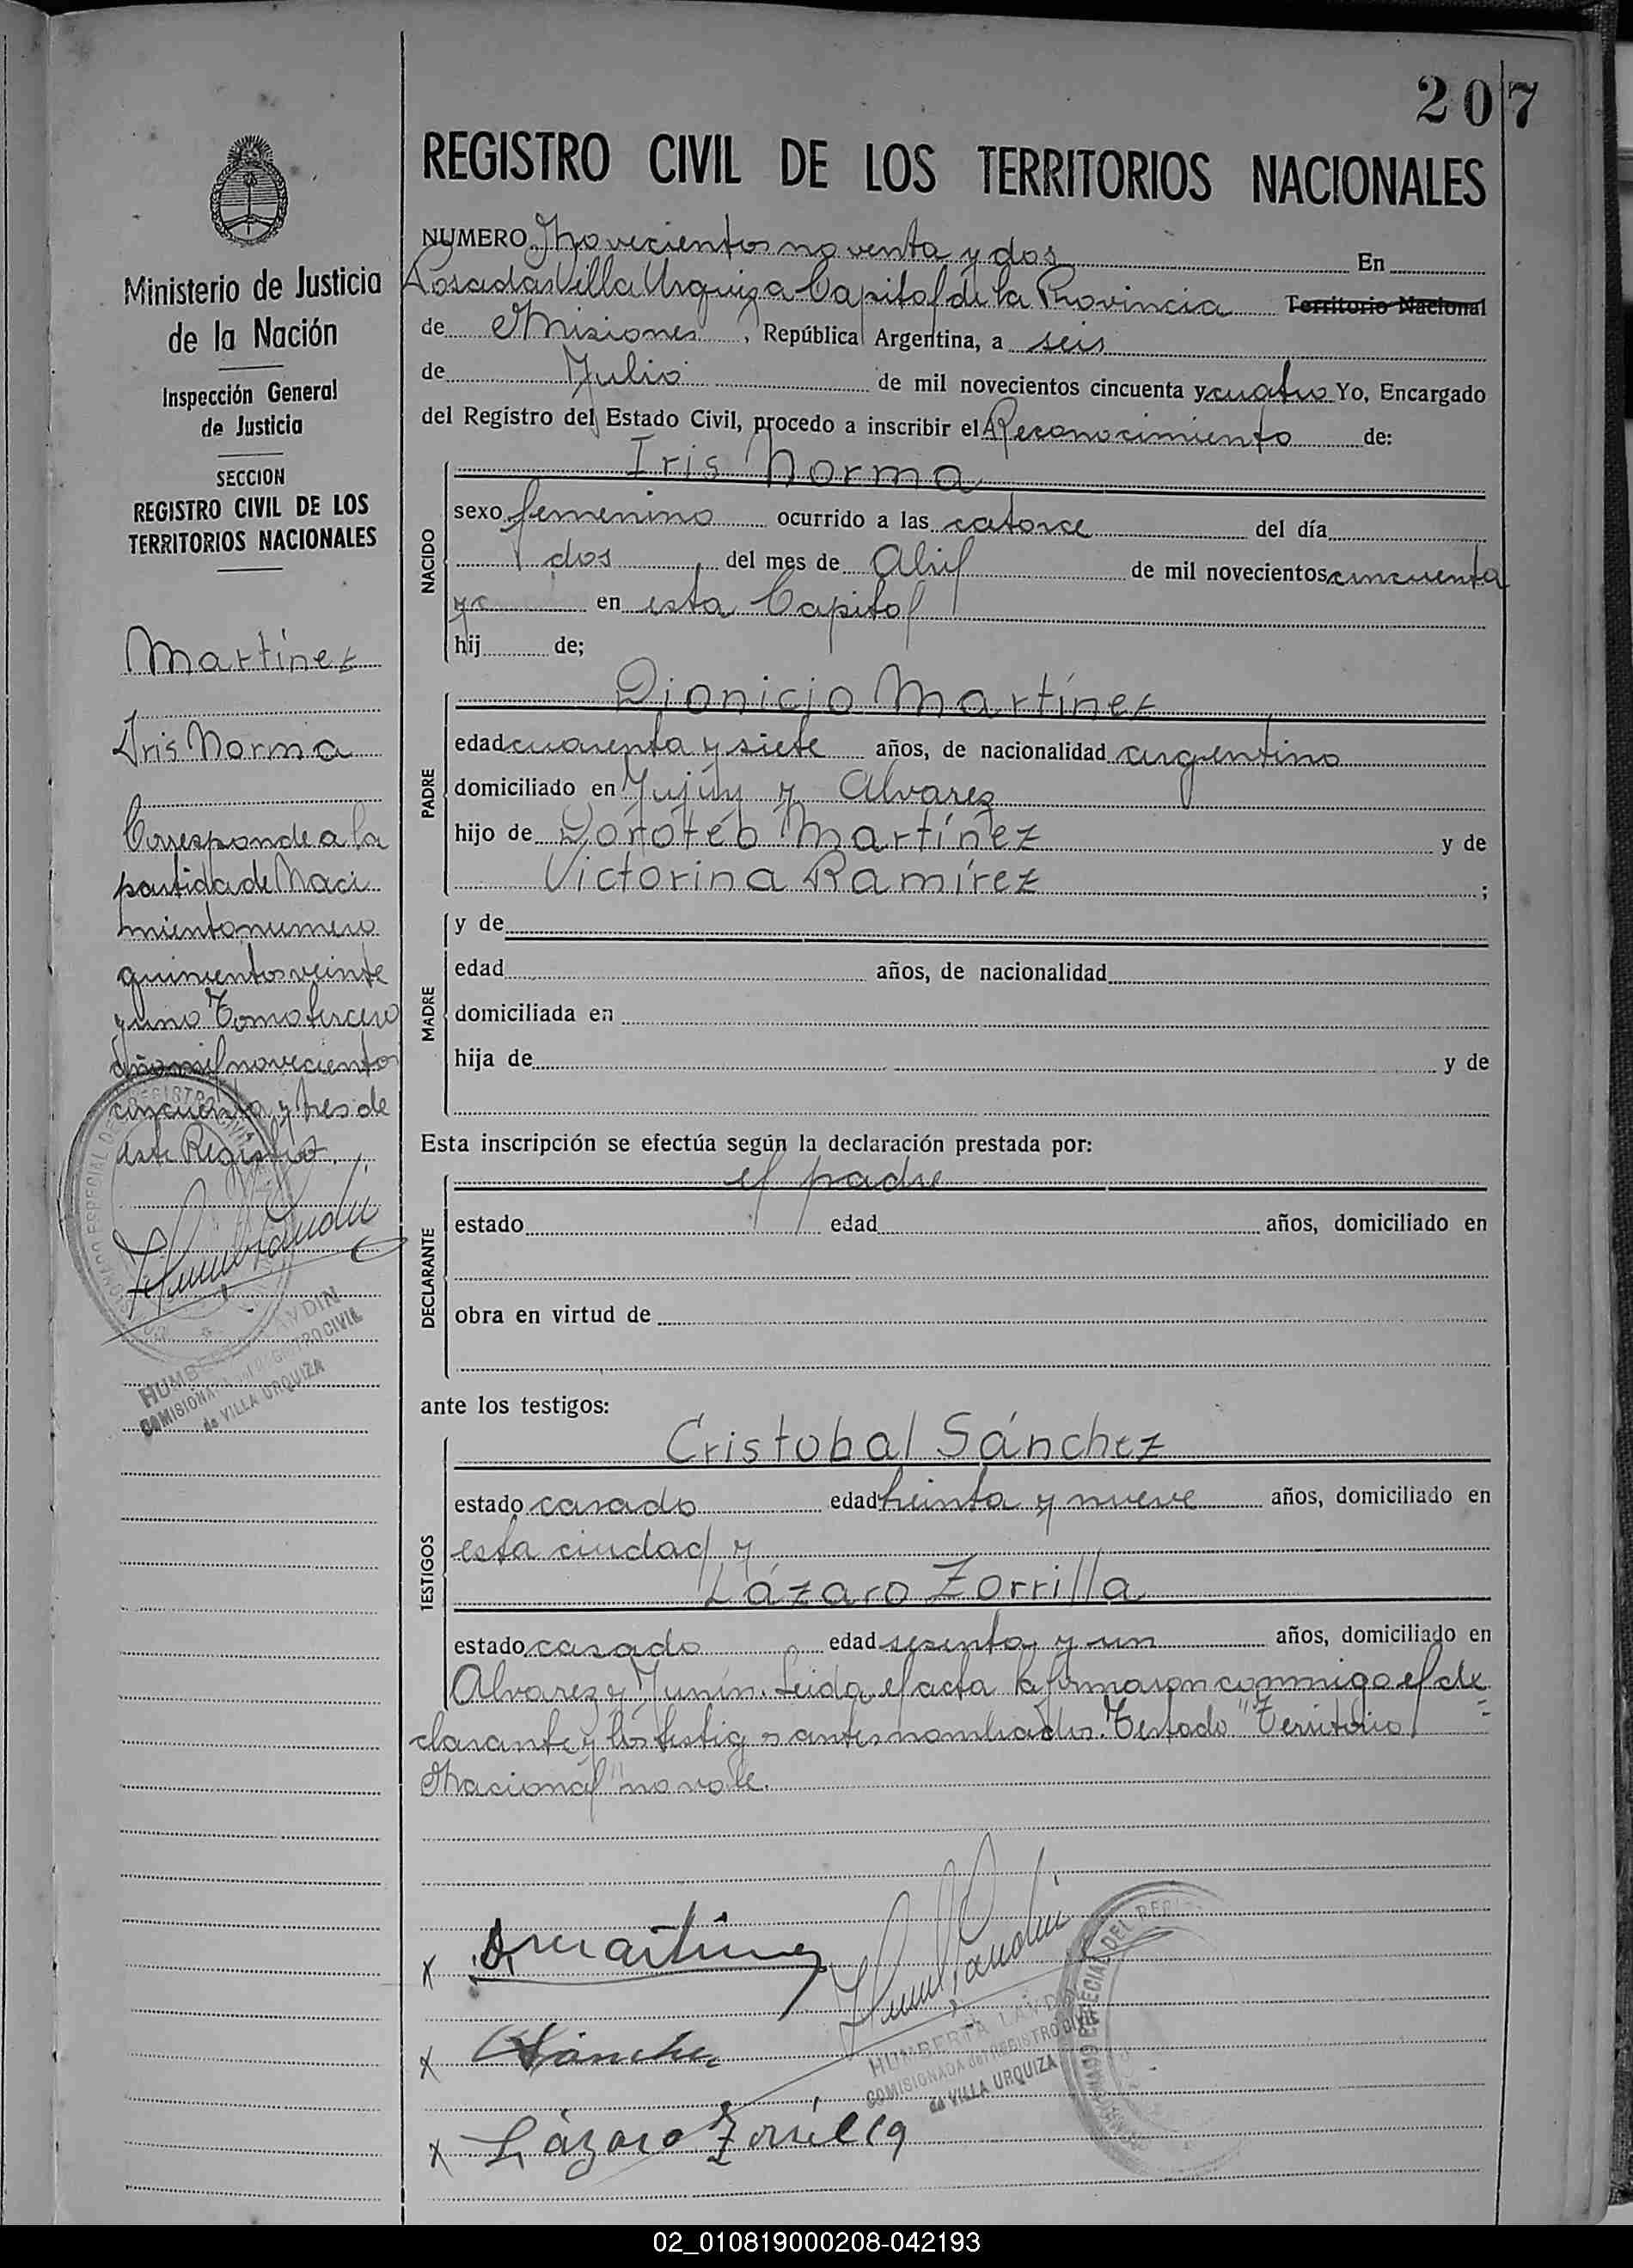 207
REGISTRO CIVIL DE LOS TERRITORIOS NACIONALES
Ministerio de Justicia
de la Nación
Inspección General
de Justicia
SECCION
REGISTRO CIVIL DE LOS
TERRITORIOS NACIONALES
Martínez
Iris Norma
Corresponde a la
partida de Naci
miento numero
quinientos veinte
y uno Tomo tercero
año mil novecientos
cincuenta y tres de
este Registro.
COMISIONADA del REGISTRO CIVIL
de VILLA URQUIZA
NUMERO Novecientos noventa y dos En
Posadas Villa Urquiza Capital de la Provincia Territorio Nacional
de Misiones, República Argentina, a seis
de Julio de mil novecientos cincuenta y cuatro Yo, Encargado
del Registro del Estado Civil, procedo a inscribir el Reconocimiento de:
NACIDO
Iris Norma
sexo femenino ocurrido a las catorce del día
dos del mes de Abril de mil novecientos cincuenta
en esta Capital
hij de;
PADRE
Dionicio Martínez
edad cuarenta y siete años, de nacionalidad argentino
domiciliado en Jujúy y Alvarez
hijo de Doroteo Martínez y de
Victorina Ramírez ;
MADRE
y de
edad años, de nacionalidad
domiciliada en
hija de y de
Esta inscripción se efectúa según la declaración prestada por:
DECLARANTE
el padre
estado edad años, domiciliado en
obra en virtud de
ante los testigos:
TESTIGOS
Cristobal Sánchez
estado casado edad treinta y nueve años, domiciliado en
esta ciudad y
Lázaro Zorrilla
estado casado edad sesenta y un años, domiciliado en
Alvarez y Junín. Leida el acta la firmaron conmigo el de=
clarante y los testigos antes nombrados. Testado "Territorio
Nacional" no vale.
x DMartinez
x CSánchez
HUMBERTA LANDIN
COMISIONADA del REGISTRO CIVIL
de VILLA URQUIZA
x Lázaro Zorrilla
02_010819000208-042193